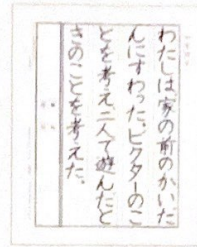 わたしは家の前のかいだ
んにすわった。ビクターのこ
とを考え、二人で遊んだと
きのことを考えた。